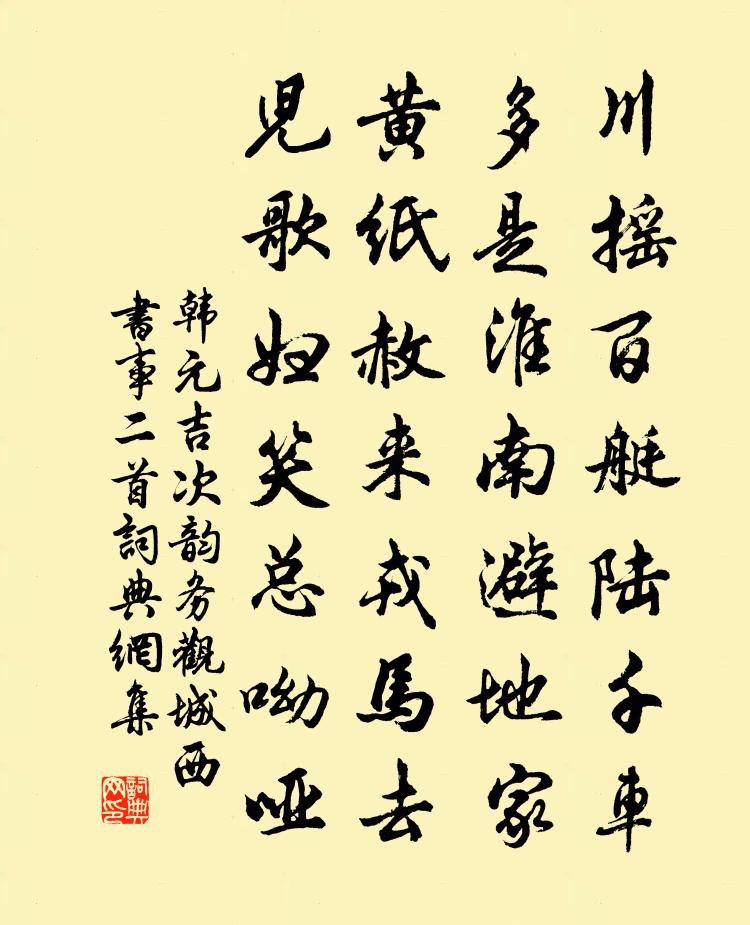 川摇百艇陆千車
多是淮南避地家
黄纸赦来戎馬去
児歌妇笑总呦哑
韩元吉次韵务觀城西
書事二首詞典網集
詞典网印